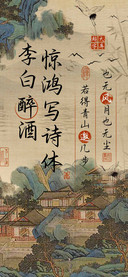 也无风月也无尘
若得青山邀几步
惊鸿写诗体
李白醉酒